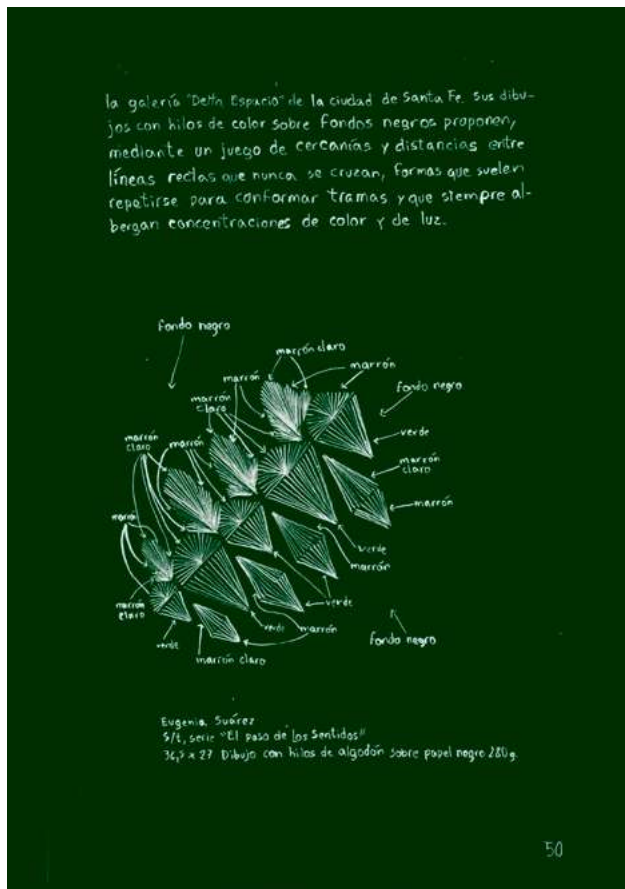 la galería "Delta Espacio" de la ciudad de Santa Fe. Sus dibu-
jos con hilos de color sobre fondos negros proponen,
mediante un juego de cercanías y distancias entre
líneas rectas que nunca se cruzan, formas que suelen
repetirse para conformar tramas y que siempre al-
bergan concentraciones de color y de luz.
fondo negro
marrón claro
marrón
marrón
fondo negro
marrón
claro
verde
marrón
claro
marrón
marrón
claro
marrón
marrón
verde
marrón
marrón
claro
verde
verde
marrón
verde
marrón claro
fondo negro
Eugenia Suárez
S/t, serie "El paso de los Sentidos"
36,5 x 27 Dibujo con hilos de algodón sobre papel negro 280g.
50